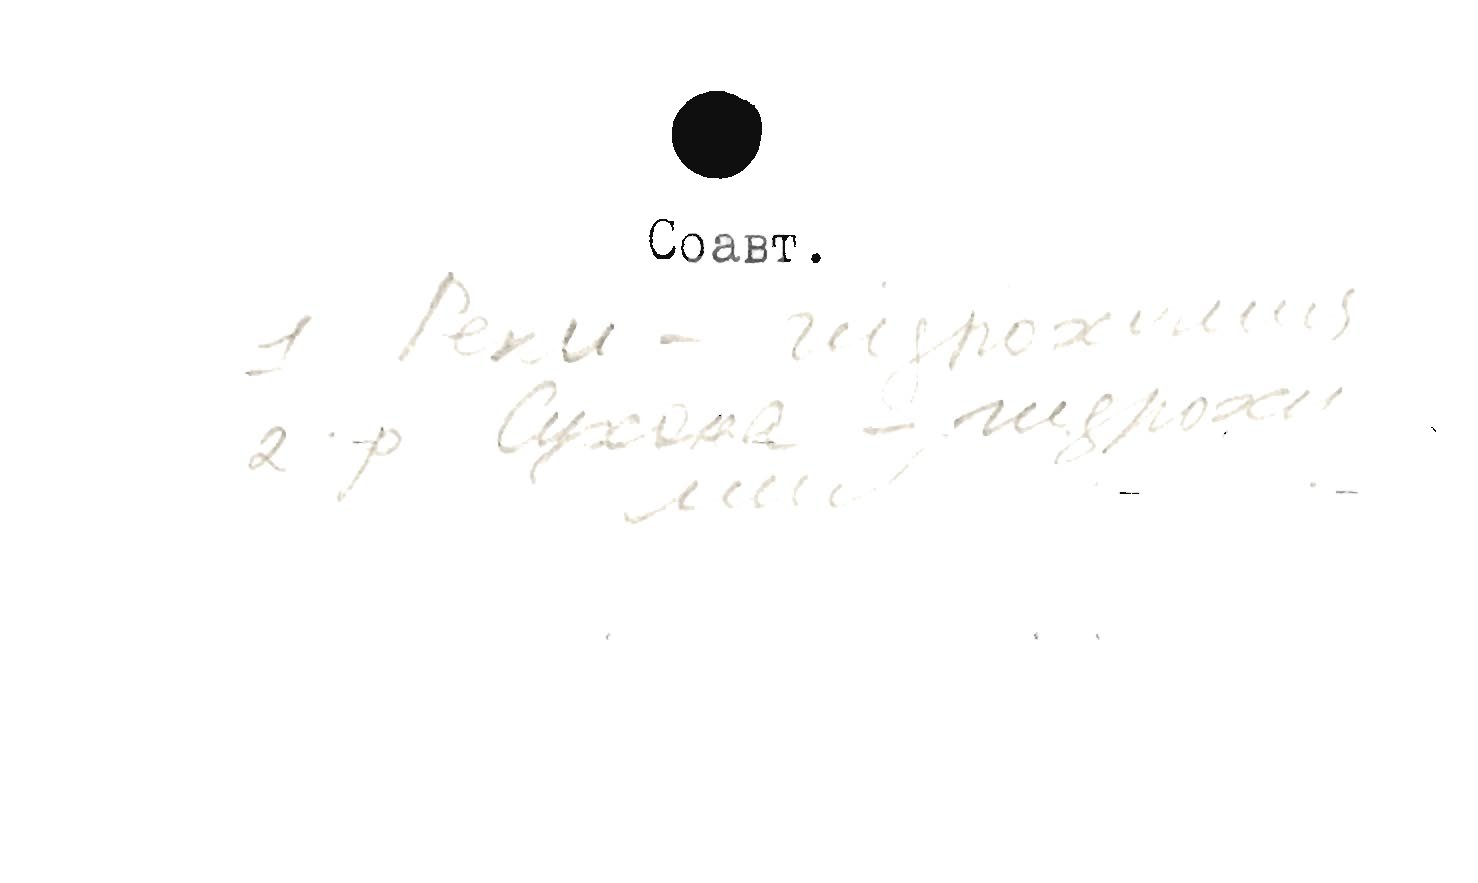 Соавт.
1 Реки - гидрохимия
2 р Сухона - гидрохи
мия